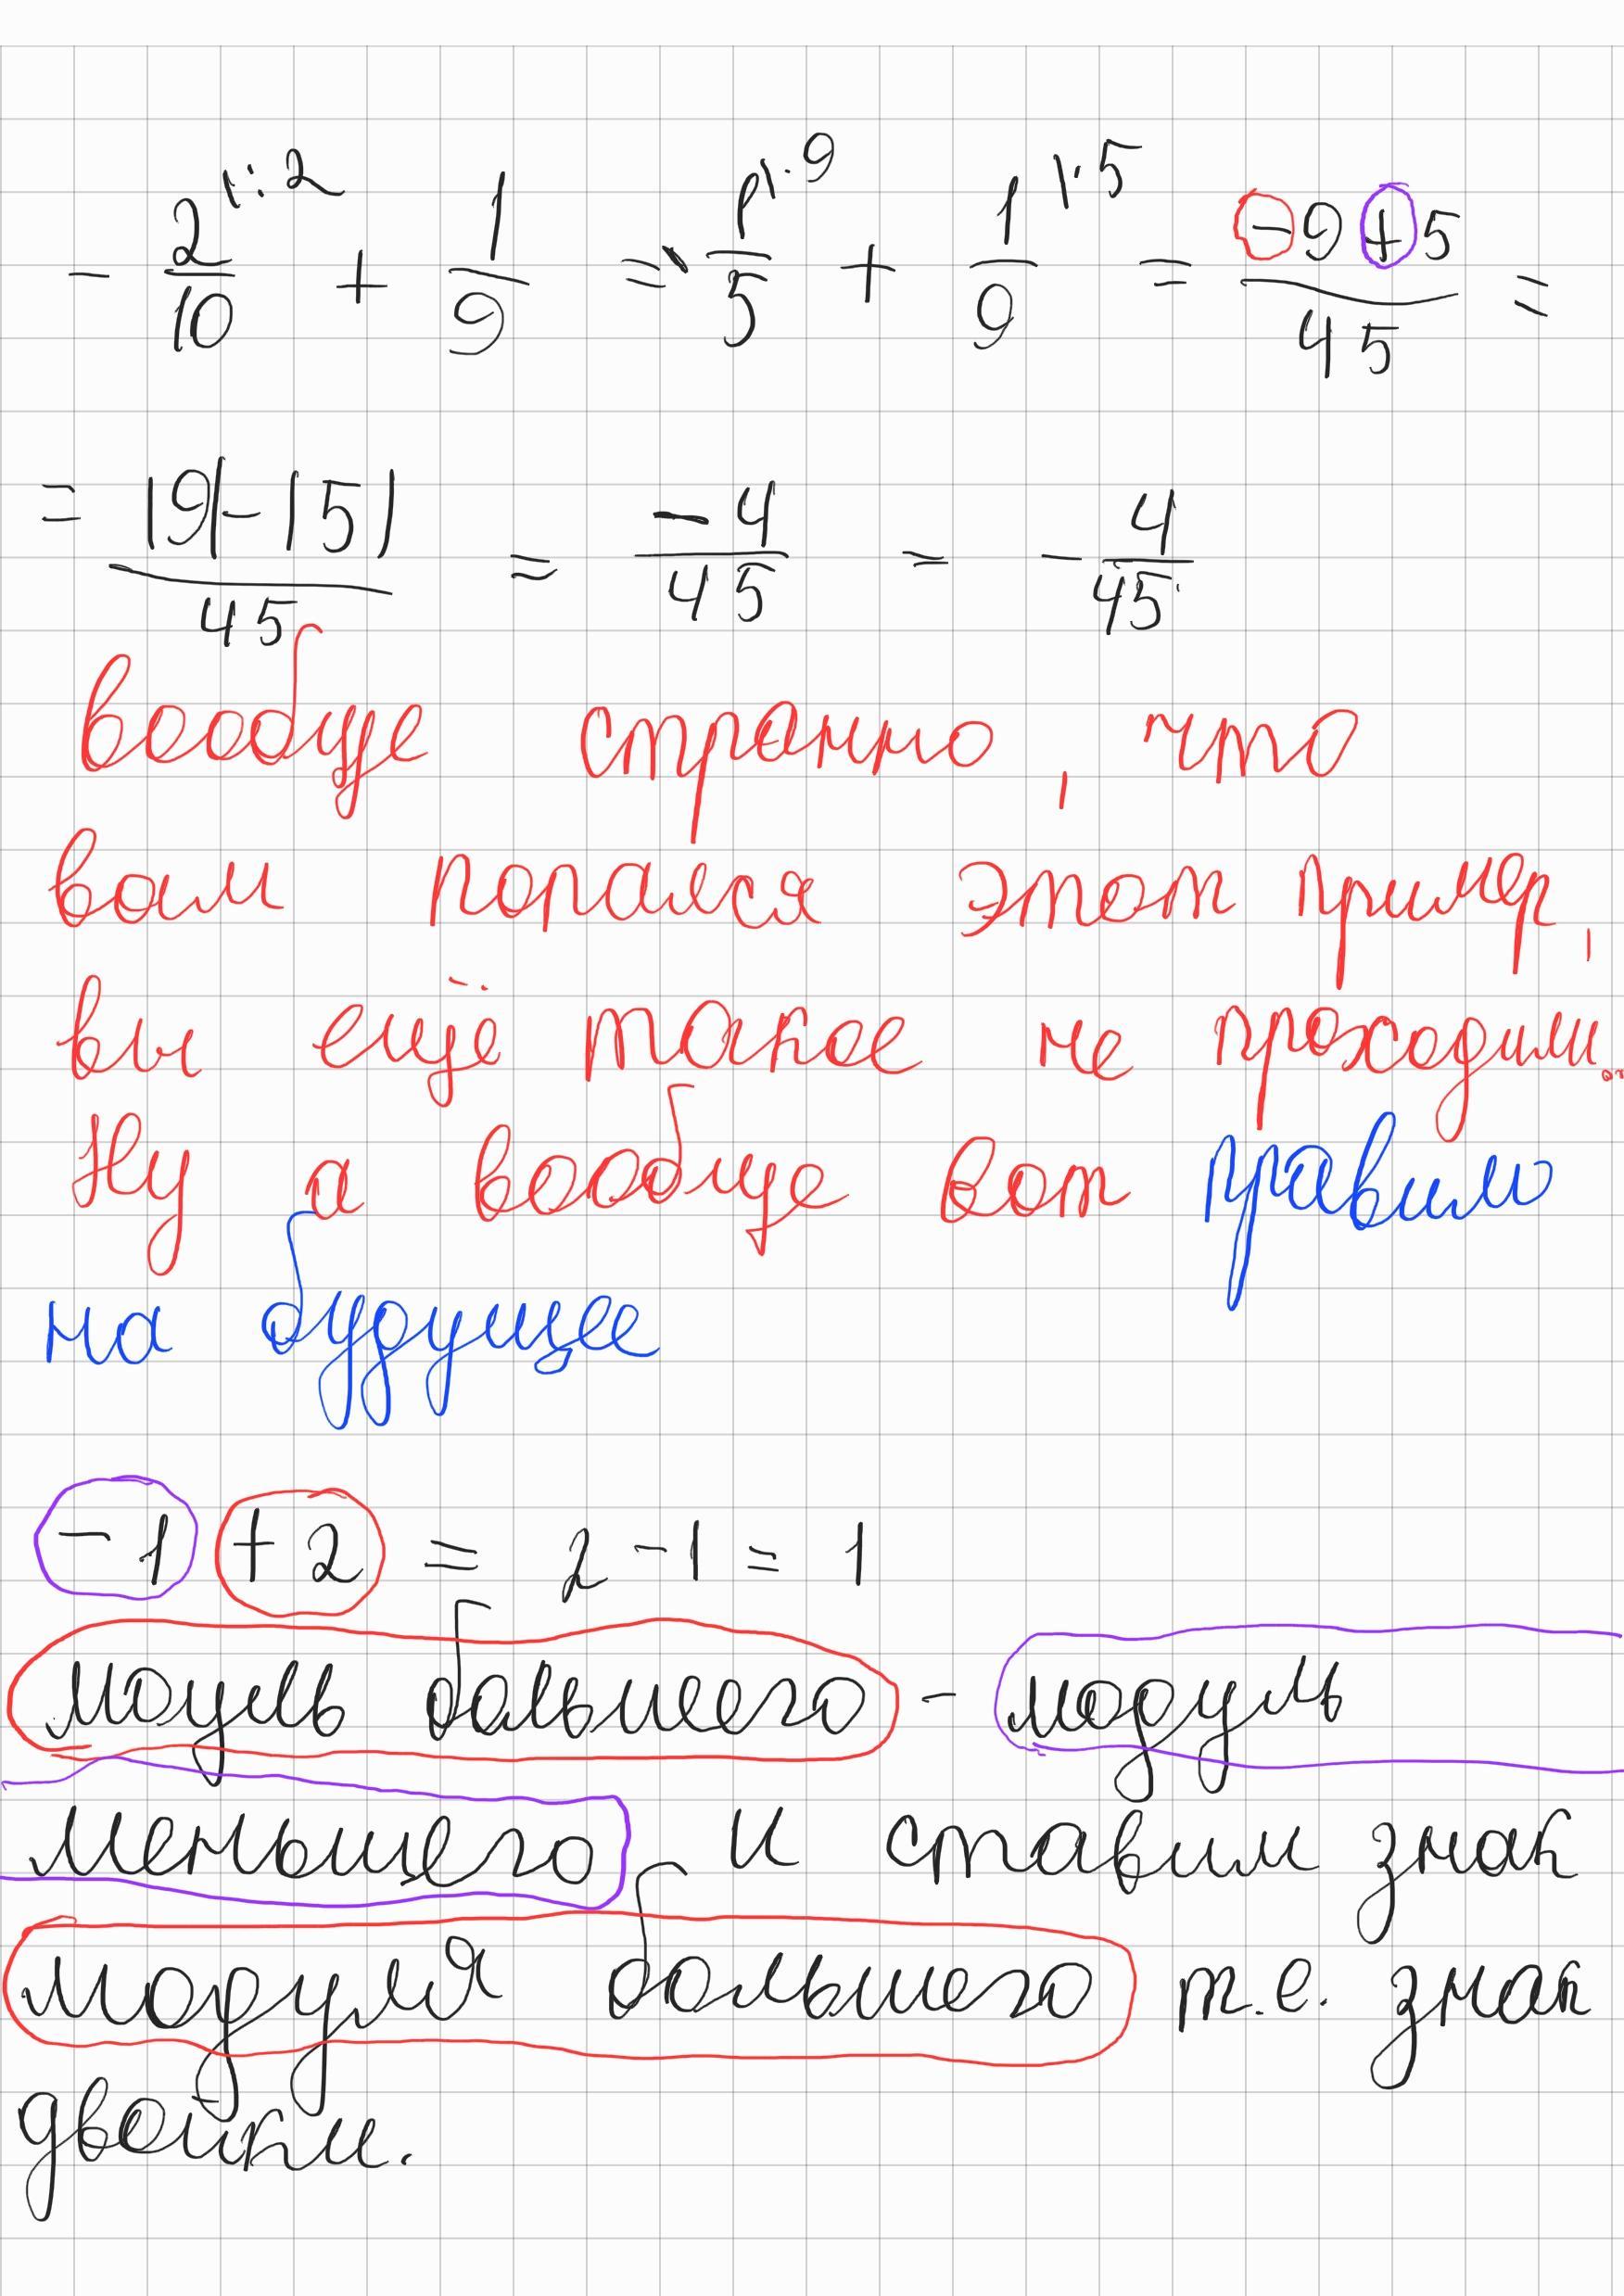 - 2/10 |:2 + 1/9 = - 1/5 |·9 + 1/9 |·5 = (-9+5)/45 =
= (|9|-|5|)/45 = -4/45 = - 4/45
вообще странно, что
вам попался этот пример,
вы ещё такое не проходили..
Ну а вообще вот правило
на будущее
-1 +2 = 2-1=1
моуль большего - модуль
меньшего и ставим знак
модуля большего т.е. знак
двойки.